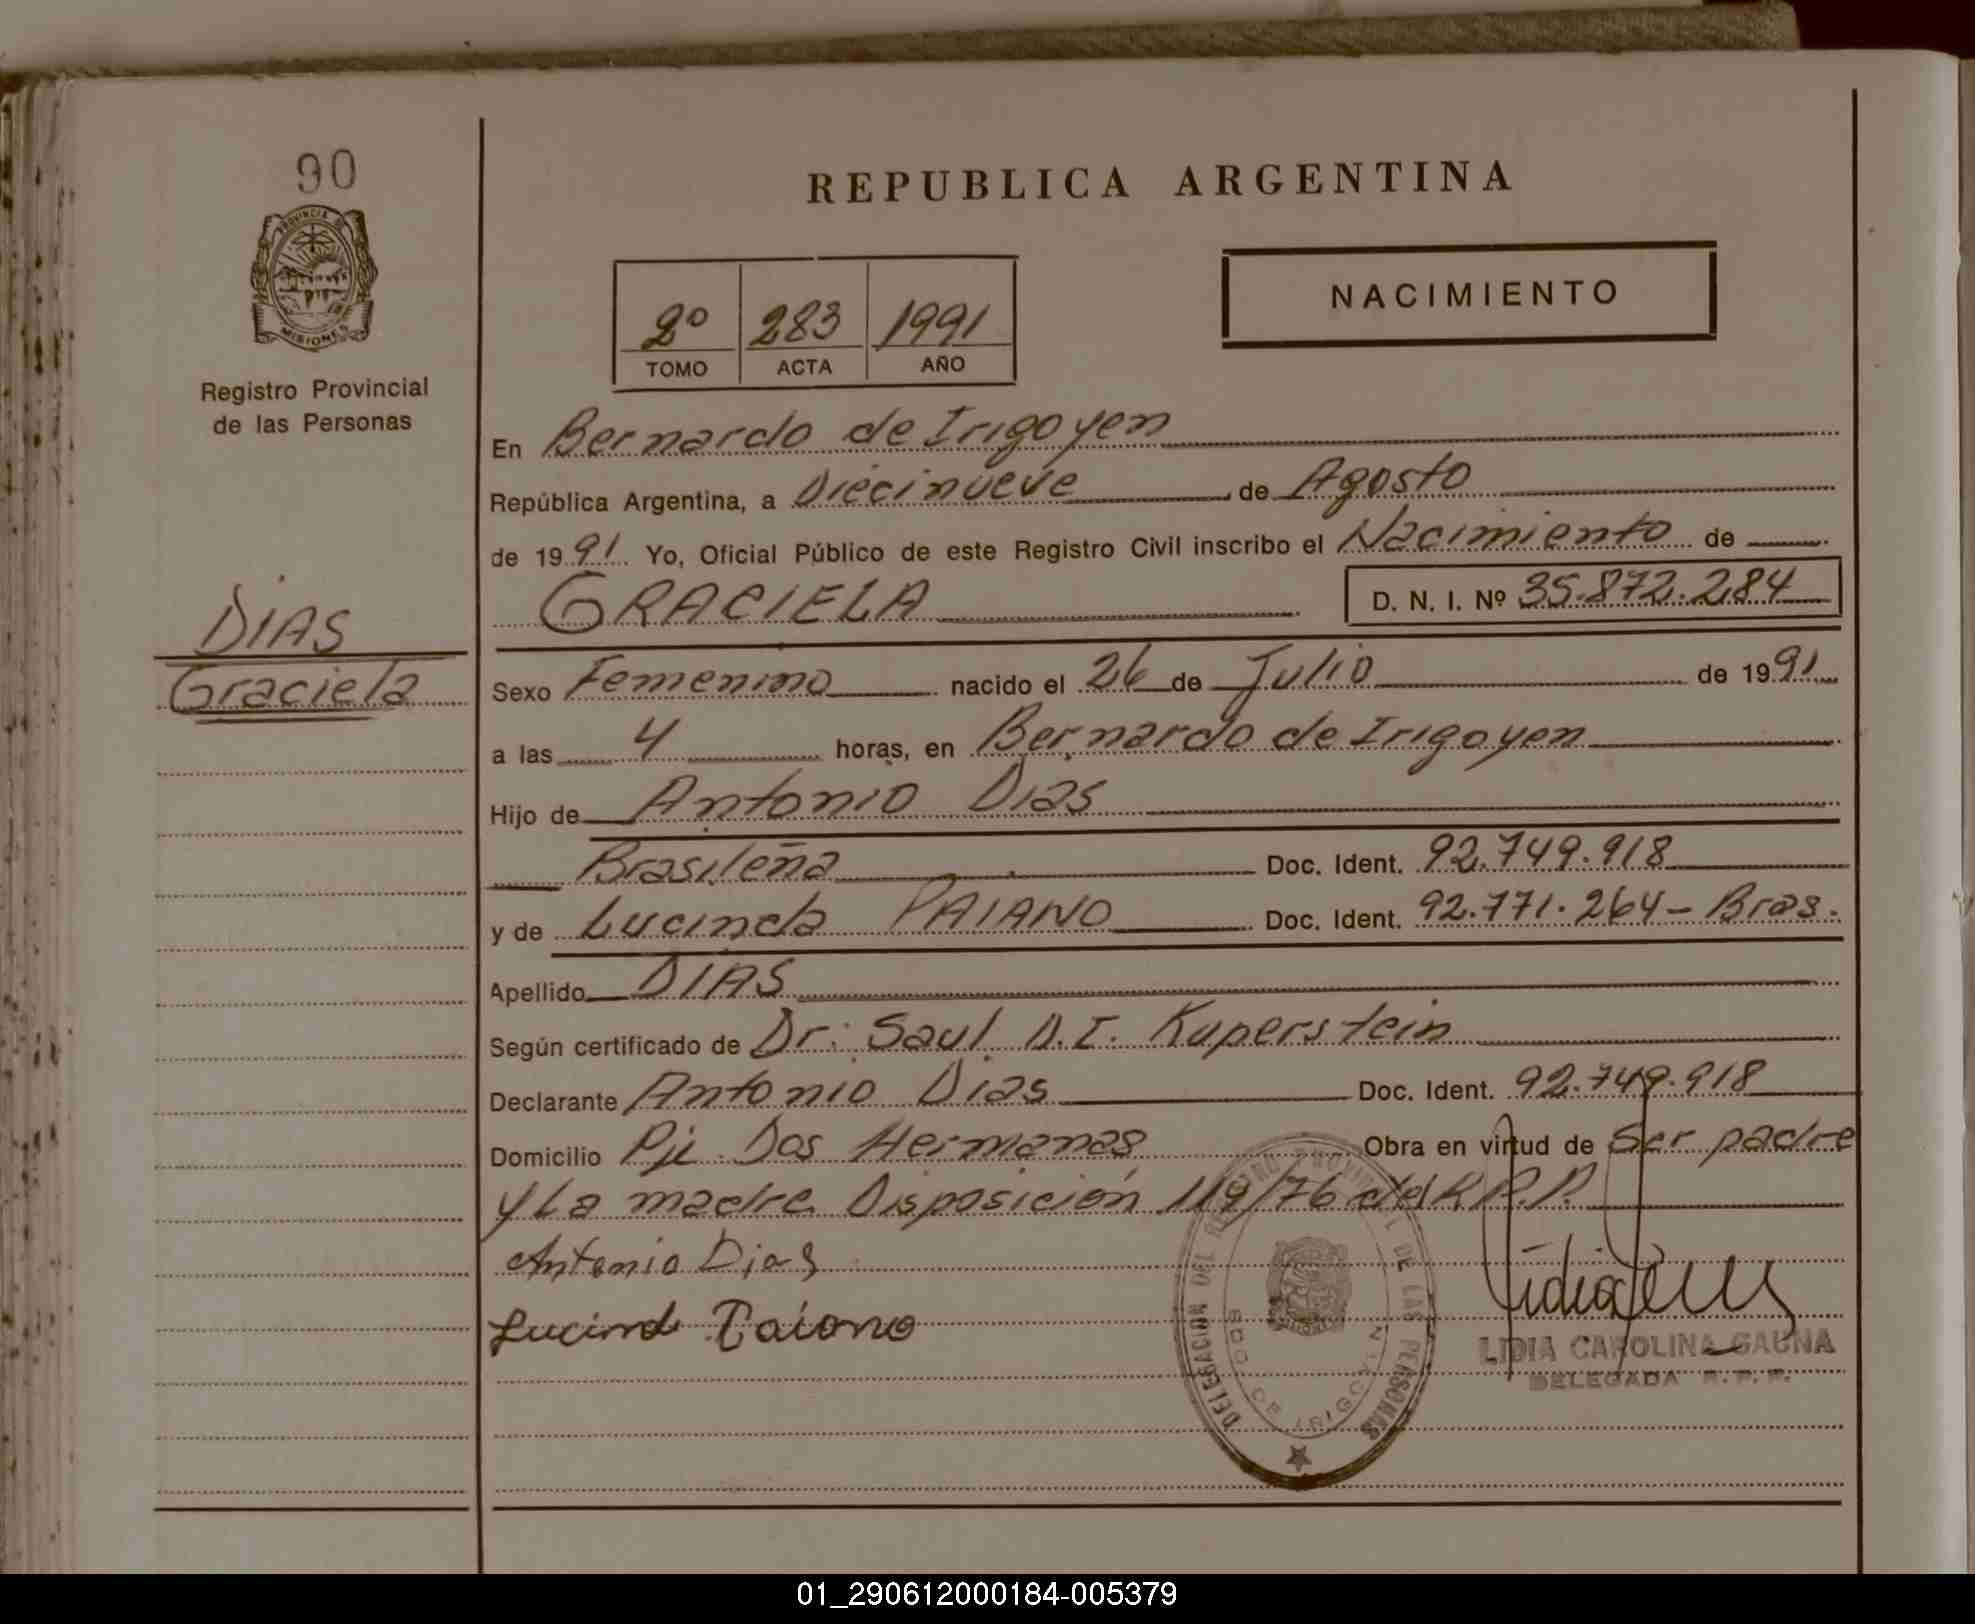 90
PROVINCIA DE
MISIONES
Registro Provincial
de las Personas
DIAS
Graciela
REPUBLICA ARGENTINA
2º 283 1991
TOMO ACTA AÑO
NACIMIENTO
En Bernardo de Irigoyen
República Argentina, a Diecinueve de Agosto
de 1991. Yo, Oficial Público de este Registro Civil inscribo el Nacimiento de
GRACIELA D. N. I. Nº 35.872.284
Sexo Femenino nacido el 26 de Julio de 1991
a las 4 horas, en Bernardo de Irigoyen
Hijo de Antonio Dias
Brasileña Doc. Ident. 92.749.918
y de Lucinda PAIANO Doc. Ident. 92.771.264 - Bras.
Apellido DIAS
Según certificado de Dr. Saul D.I. Kuperstein
Declarante Antonio Dias Doc. Ident. 92.749.918
Domicilio Pje. Dos Hermanas Obra en virtud de Ser padre
y La madre Disposición 119/76 del R.P.P.
Antonio Dias
Lucind Paiano
DELEGACION DEL REGISTRO PROVINCIAL DE LAS PERSONAS
BDO. DE IRIGOYEN
LIDIA CAROLINA GAUNA
DELEGADA R. P. P.
01_290612000184-005379